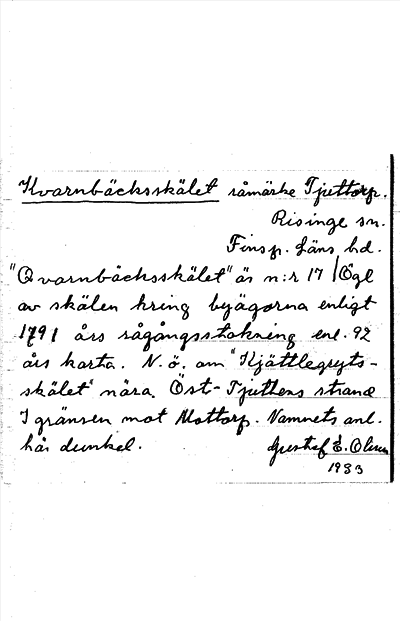 Kvarnbäcksskälet råmärke Tjuttorp.
Risinge sn.
Finsp. Läns hd.
"Qvarnbäcksskälet" är n:r 17 / Ögl
av skälen kring byägorna enligt
1791 års rågångsstakning enl. 92
års karta. N.ö. om "Kjättlegryts-
skälet" nära Öst-Tjuttens strand
I gränsen mot Mottorp. Namnets anl.
här dunkel. Gustaf E. Olsson
1933